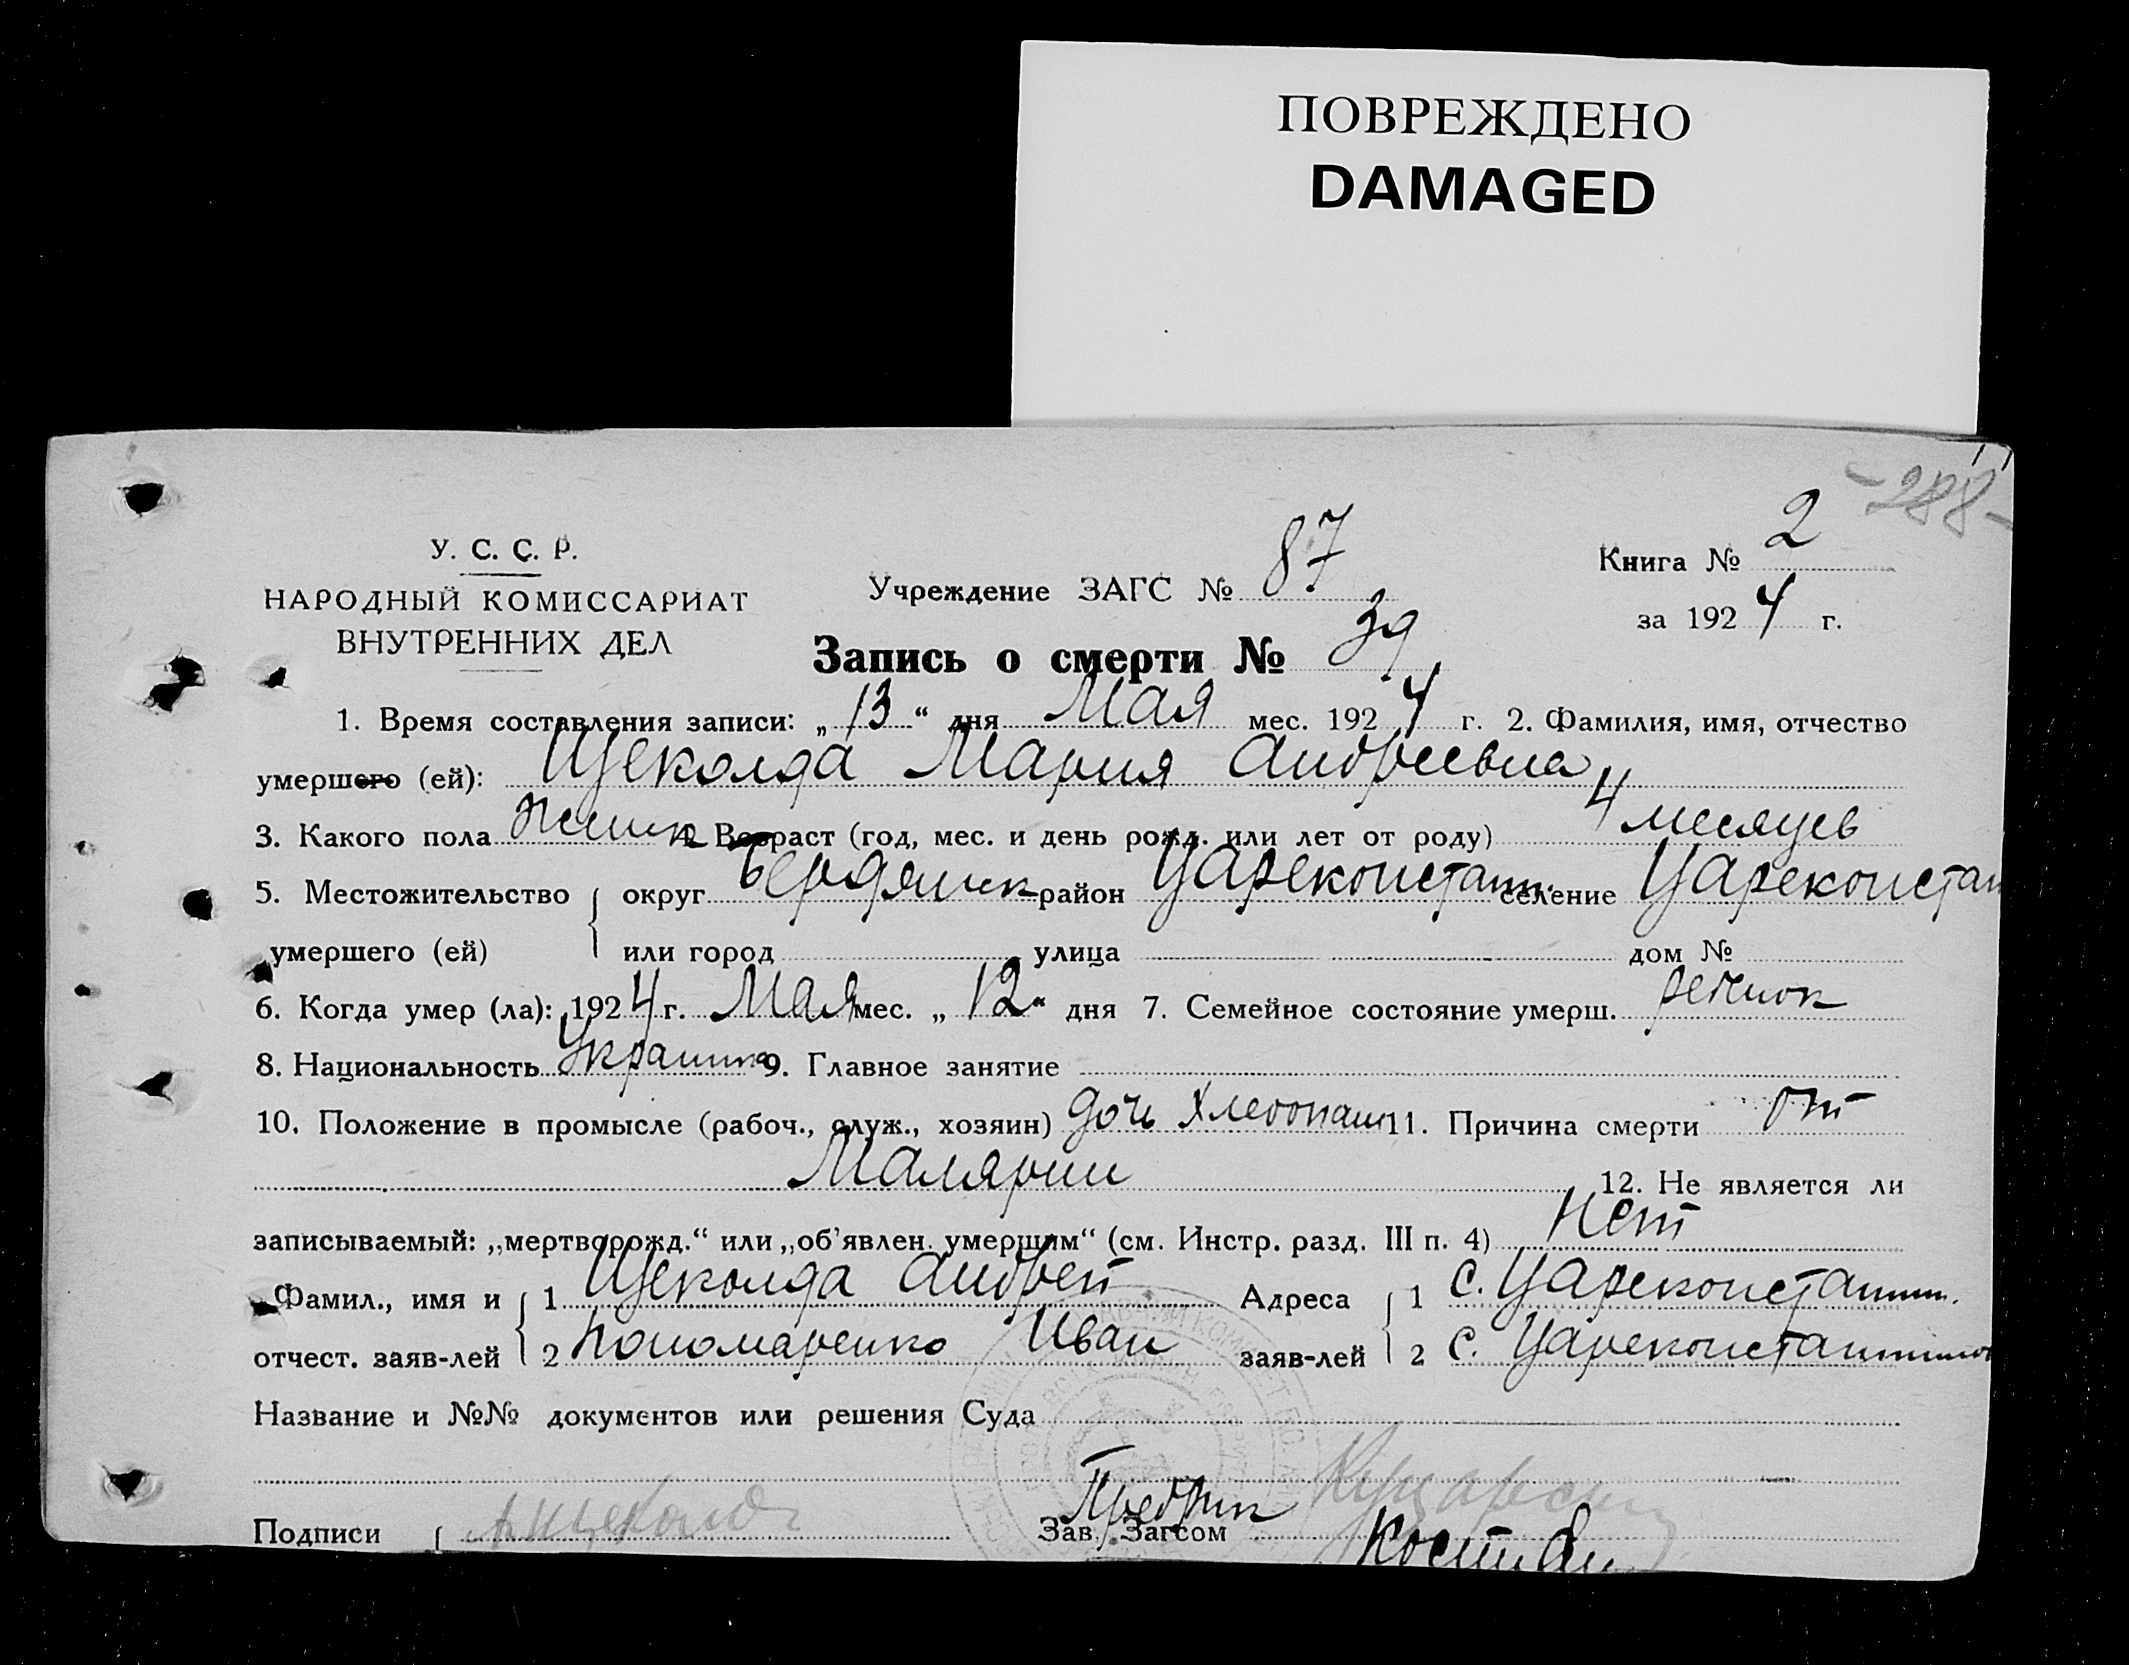 ПОВРЕЖДЕНО
DAMAGED
-288-
У. С. С. Р.
НАРОДНЫЙ КОМИССАРИАТ
ВНУТРЕННИХ ДЕЛ
Учреждение ЗАГС № 87
Книга № 2
за 1924 г.
Запись о смерти № 39
1. Время составления записи: „13“ дня Мая мес. 1924 г. 2. Фамилия, имя, отчество
умершего (ей): Щеколда Мария Андреевна
3. Какого пола женск 4. Возраст (год, мес. и день рожд. или лет от роду) 4 месяцев
5. Местожительство { округ Бердянск район Цареконстант. селение Цареконстан
умершего (ей) или город улица дом №
6. Когда умер (ла): 1924 г. Мая мес. „12“ дня 7. Семейное состояние умерш. ребенок
8. Национальность Украинка 9. Главное занятие
10. Положение в промысле (рабоч., служ., хозяин) дочь хлебопаш 11. Причина смерти от
Малярии 12. Не является ли
записываемый: „мертворожд.“ или „об’явлен. умершим“ (см. Инстр. разд. III п. 4) Нет
Фамил., имя и { 1 Щеколда Андрей Адреса { 1 с. Цареконстантин.
отчест. заяв-лей 2 Пономаренко Иван заяв-лей 2 с. Цареконстантинов
Название и №№ документов или решения Суда
Подписи { А Щеколда Предрик
Зав. Загсом